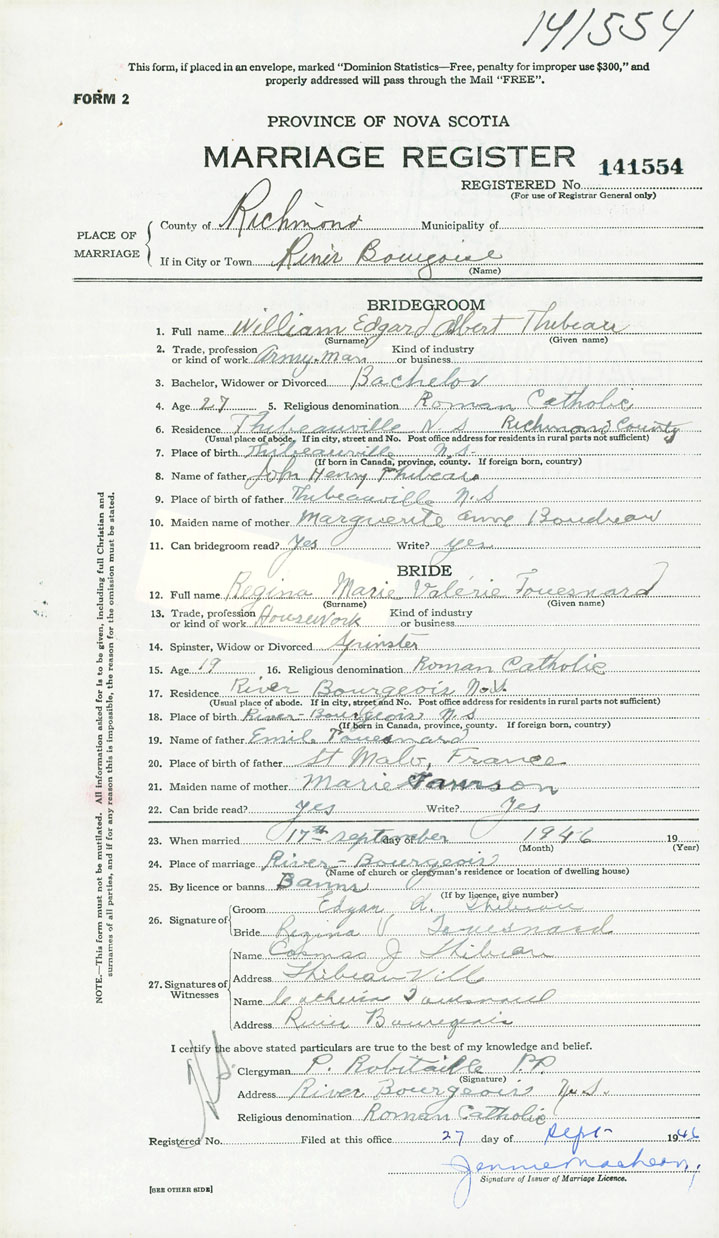 141554
This form, if placed in an envelope, marked "Dominion Statistics—Free, penalty for improper use $300," and
properly addressed will pass through the Mail "FREE".
FORM 2
PROVINCE OF NOVA SCOTIA
MARRIAGE REGISTER 141554
REGISTERED No.
(For use of Registrar General only)
PLACE OF MARRIAGE
County of Richmond Municipality of
If in City or Town River Bourgoise
(Name)
BRIDEGROOM
1. Full name William Edgar Albert Thibeau
(Surname) (Given name)
2. Trade, profession or kind of work Army-man Kind of industry or business
3. Bachelor, Widower or Divorced Bachelor
4. Age 27 5. Religious denomination Roman Catholic
6. Residence Thibeauville N S Richmond County
(Usual place of abode. If in city, street and No. Post office address for residents in rural parts not sufficient)
7. Place of birth Thibeauville N.S.
(If born in Canada, province, county. If foreign born, country)
8. Name of father John Henry Thibeau
9. Place of birth of father Thibeauville N.S
10. Maiden name of mother Marguerite Anne Boudreau
11. Can bridegroom read? Yes Write? yes
BRIDE
12. Full name Regina Marie Valérie Touesnard
(Surname) (Given name)
13. Trade, profession or kind of work Housework Kind of industry or business
14. Spinster, Widow or Divorced Spinster
15. Age 19 16. Religious denomination Roman Catholic
17. Residence River Bourgeois N.S.
(Usual place of abode. If in city, street and No. Post office address for residents in rural parts not sufficient)
18. Place of birth River-Bourgeois N.S
(If born in Canada, province, county. If foreign born, country)
19. Name of father Emile Touesnard
20. Place of birth of father St Malo, France
21. Maiden name of mother Marie
22. Can bride read? yes Write? Yes
23. When married 17th september day of 1946 19
(Month) (Year)
24. Place of marriage River-Bourgeois
(Name of church or clergyman's residence or location of dwelling house)
25. By licence or banns Banns
(If by licence, give number)
26. Signature of
Groom Edgar A. Thibeau
Bride Regina V Touesnard
27. Signatures of Witnesses
Name Cosmas J Thibeau
Address Thibeauville
Name Catherine Touesnard
Address River Bourgeois
I certify the above stated particulars are true to the best of my knowledge and belief.
Clergyman P. Robitaille P.P.
(Signature)
Address River Bourgeois N.S.
Religious denomination Roman Catholic
Registered No. Filed at this office 27 day of Sept- 1946
Signature of Issuer of Marriage Licence.
[SEE OTHER SIDE]
NOTE.—This form must not be mutilated. All information asked for is to be given, including full Christian and
surnames of all parties, and if for any reason this is impossible, the reason for the omission must be stated.